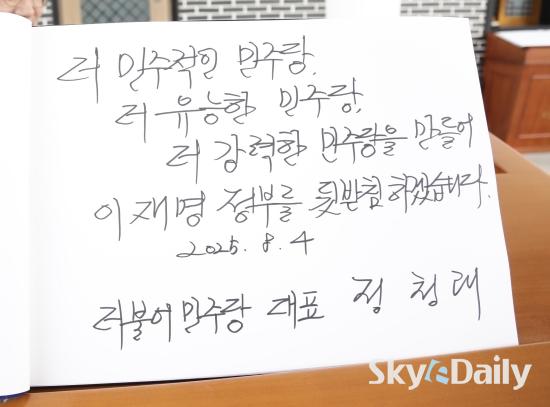 더 민주적인 민주당,
더 유능한 민주당,
더 강력한 민주당을 만들어
이재명 정부를 뒷받침하겠습니다.
2025. 8. 4
더불어민주당 대표 정청래
SkyeDaily